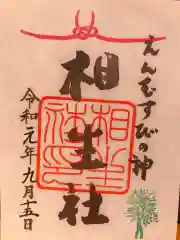 えんむすびの神
相生社
相生社神印
令和元年九月十五日